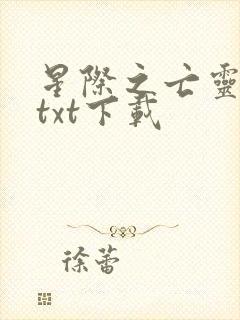 星際之亡靈
txt下載
徐蕾